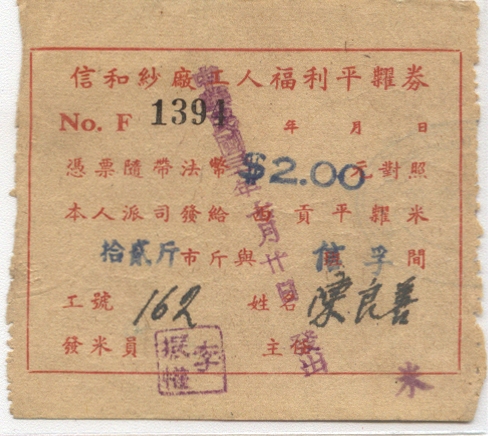 信和紗廠工人福利平糶券
No. F 1394 年 月 日
憑票隨帶法幣 $2.00 元對照
本人派司發給西貢平糶米
拾貳斤市斤與 信孚 間
工號 162 姓名 陳良善
發米員 主管
李振權
米